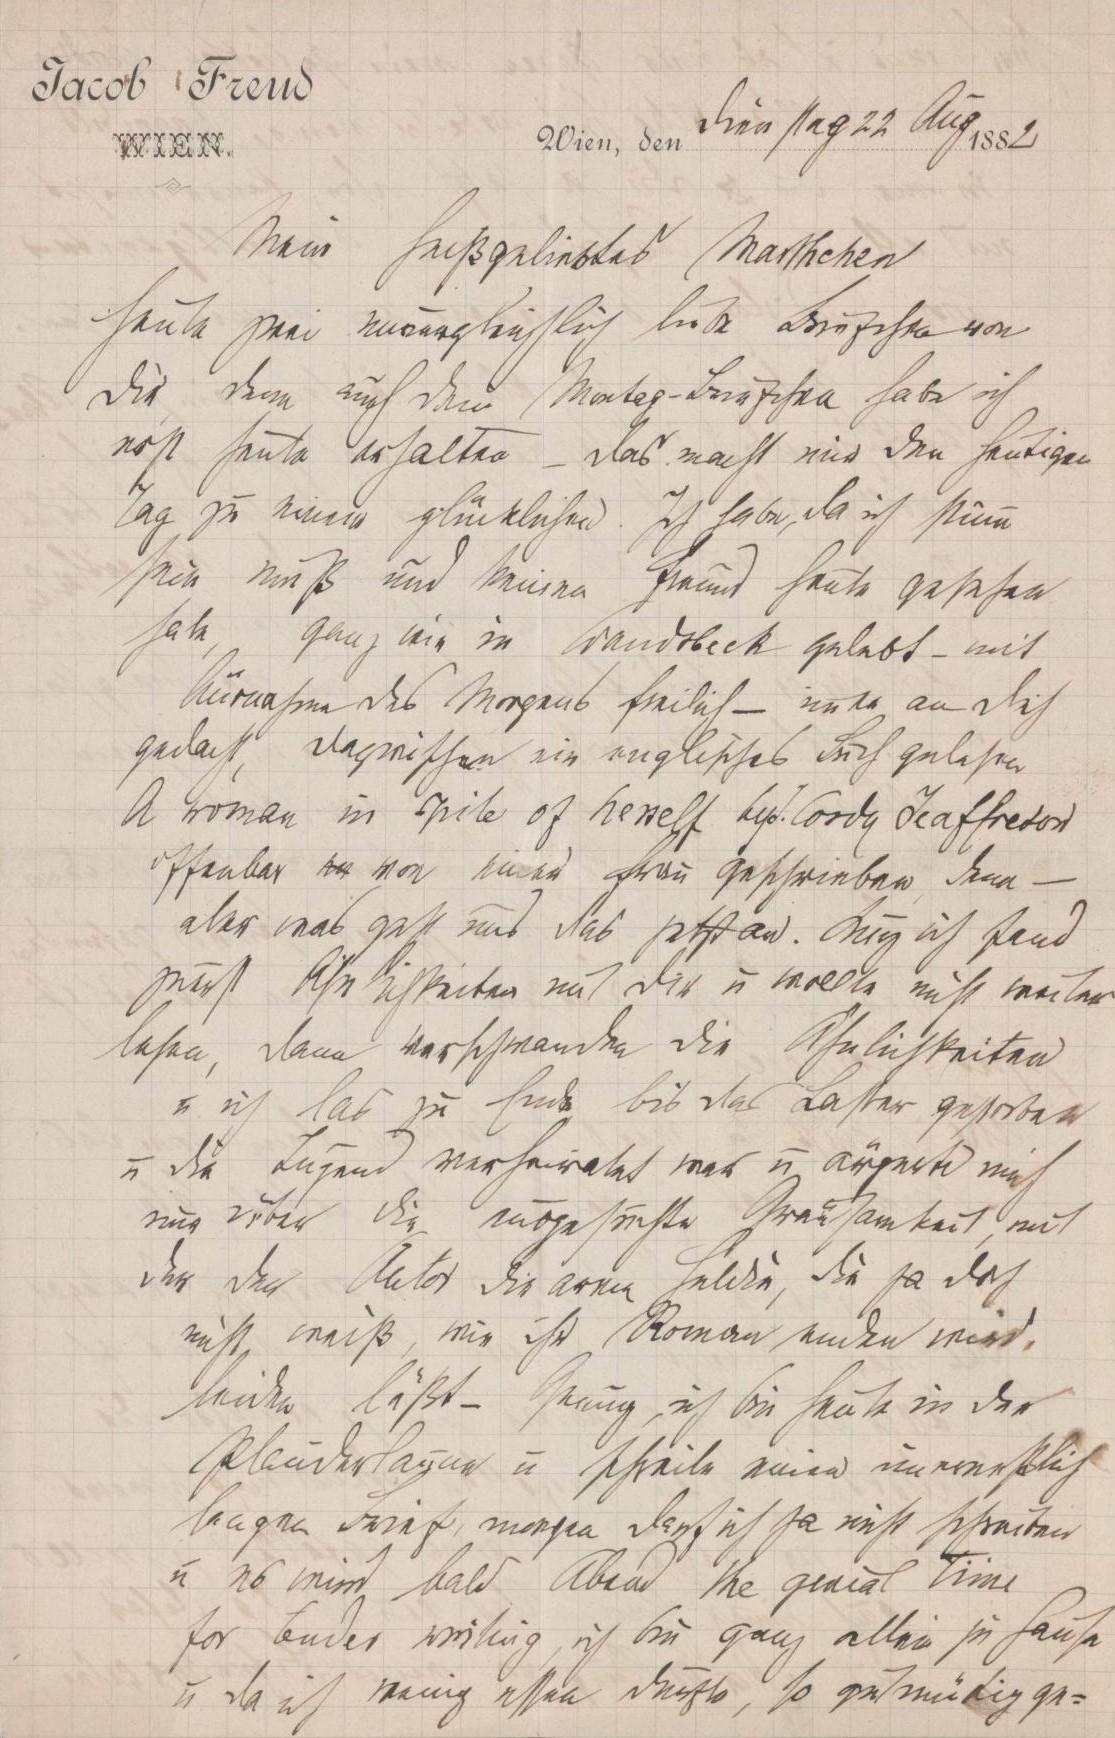 Jacob Freud
WIEN.
Wien, den Dienstag 22 Aug 1882
Mein heißgeliebtes Marthchen
Heute zwei unvergleichlich liebe Briefchen von
Dir, denn auch dein Montag-Briefchen habe ich
erst heute erhalten – das macht mir den heutigen
Tag zu einem glücklichen. Ich habe, da ich stumm
sein muß und keinen Freund heute gesehen
habe, ganz wie in Wandsbeck gelebt – mit
Ausnahme des Morgens freilich – immer an Dich
gedacht, dazwischen ein englisches Buch gelesen
A woman in spite of herself by J. Cordy Jeaffreson
offenbar von einer Frau geschrieben, denn –
aber was geht uns das jetzt an. Genug ich fand
zuerst Ähnlichkeiten mit Dir u wollte nicht weiter
lesen, dann verschwanden die Ähnlichkeiten
u ich las zu Ende bis das Laster gestorben
u die Tugend verheiratet war u ärgerte mich
nur über die ausgesuchte Grausamkeit, mit
der der Autor die arme Heldin, die ja doch
nicht weiß, wie ihr Roman enden wird,
leiden läßt – Genug, ich bin heute in der
Plauderlaune u schreibe einen unermeßlich
langen Brief, morgen darf ich ja nicht schreiben
u es wird bald Abend the genial time
for tender writing, ich bin ganz allein zu Hause
u da ich wenig essen durfte, so gutmütig ge=